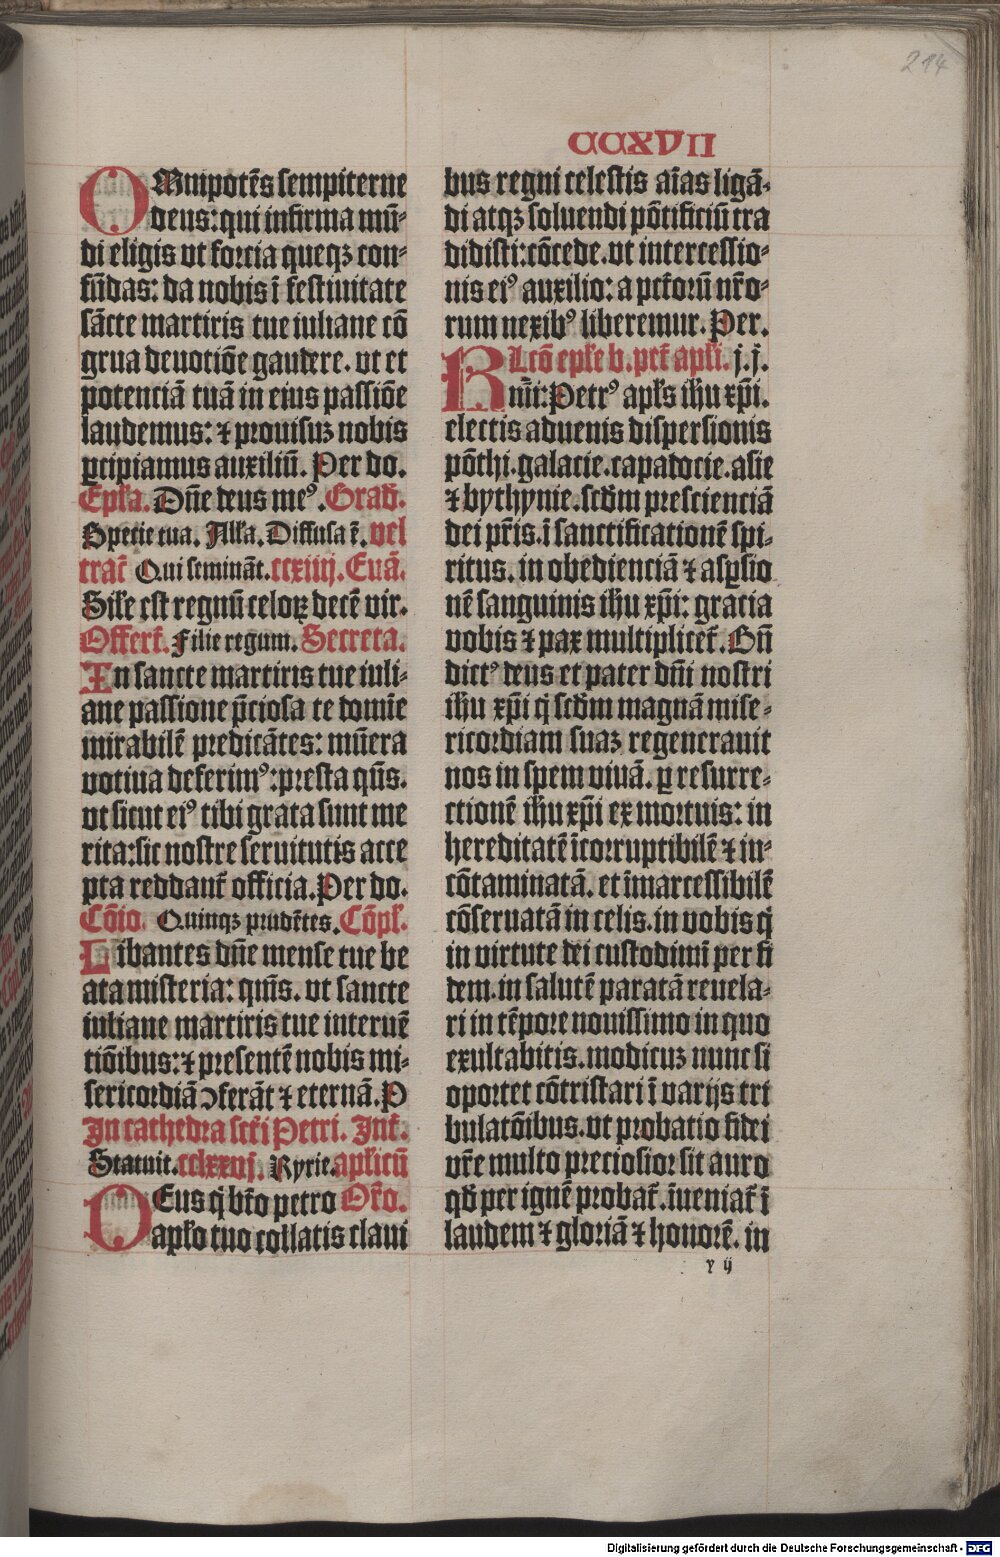 214
CCXVII
OMnipotēs sempiterne
deus: qui infirma mū-
di eligis vt forcia queqꝫ con-
fūdas: da nobis ī festiuitate
sācte martiris tue iuliane cō
grua deuotiōe gaudere. vt et
potenciā tuā in eius passiōe
laudemus: ⁊ prouisuꝫ nobis
ꝑcipiamus auxiliū. Per do.
Epl̄a. Dn̄e deus meꝰ. Grad̄.
Specie tua. All̄a. Diffusa ē. vel
tract̄ Qui semināt. ccxiiij. Euā.
Sil̄e est regnū celoꝝ decē vir.
Offert̄. Filie regum. Secreta.
In sancte martiris tue iuli-
ane passione p̄ciosa te domīe
mirabilē predicātes: mūera
votiua deferimꝰ: presta qūs.
vt sicut eiꝰ tibi grata sunt me
rita: sic nostre seruitutis acce
pta reddant̄ officia. Per do.
Cōio. Quinqꝫ prudētes. Cōpl̄.
Libantes dn̄e mense tue be
ata misteria: qm̄s. vt sancte
iuliane martiris tue interuē
tiōibus: ⁊ presentē nobis mi-
sericordiā ꝯferāt ⁊ eternā. P
In cathedra sct̄i Petri. Int̄.
Statuit. cclxxvj. Kyrie. apl̄icū
DEus q̄ bt̄o petro Or̄o.
apl̄o tuo collatis claui
bus regni celestis aīas ligā-
di atqꝫ soluendi pōtificiū tra
didisti: cōcede. vt intercessio-
nis eiꝰ auxilio: a pct̄orū nr̄o-
rum nexibꝰ liberemur. Per.
Lc̄o epl̄e b. pet̄ apl̄i. j. j.
nīi: Petrꝰ apl̄s ih̄u xp̄i.
electis aduenis dispersionis
pōthi. galacie. capadocie. asie
⁊ bythynie. scdm̄ presciencia̅
dei pr̄is. ī sanctificationē spi-
ritus. in obediencia̅ ⁊ asꝑsio
nē sanguinis ih̄u xp̄i: gracia
vobis ⁊ pax multiplicet̄. Bn̄
dictꝰ deus et pater dn̄i nostri
ih̄u xp̄i q̄ scdm̄ magnā mise-
ricordiam suaꝫ regenerauit
nos in spem viuā. ꝑ resurre-
ctionē ih̄u xp̄i ex mortuis: in
hereditatē īcorruptibilē ⁊ in-
cōtaminatā. et īmarcessibilē
cōseruatā in celis. in vobis q̄
in virtute dei custodimī per fi
dem. in salutē paratā reuela-
ri in tēpore nouissimo in quo
exultabitis. modicuꝫ nunc si
oportet cōtristari ī varijs tri
bulatōibus. vt probatio fidei
vr̄e multo preciosior sit auro
qd̄ per ignē probat̄. īueniat̄ ī
laudem ⁊ gloriā ⁊ honorē. in
y ij
Digitalisierung gefördert durch die Deutsche Forschungsgemeinschaft - DFG